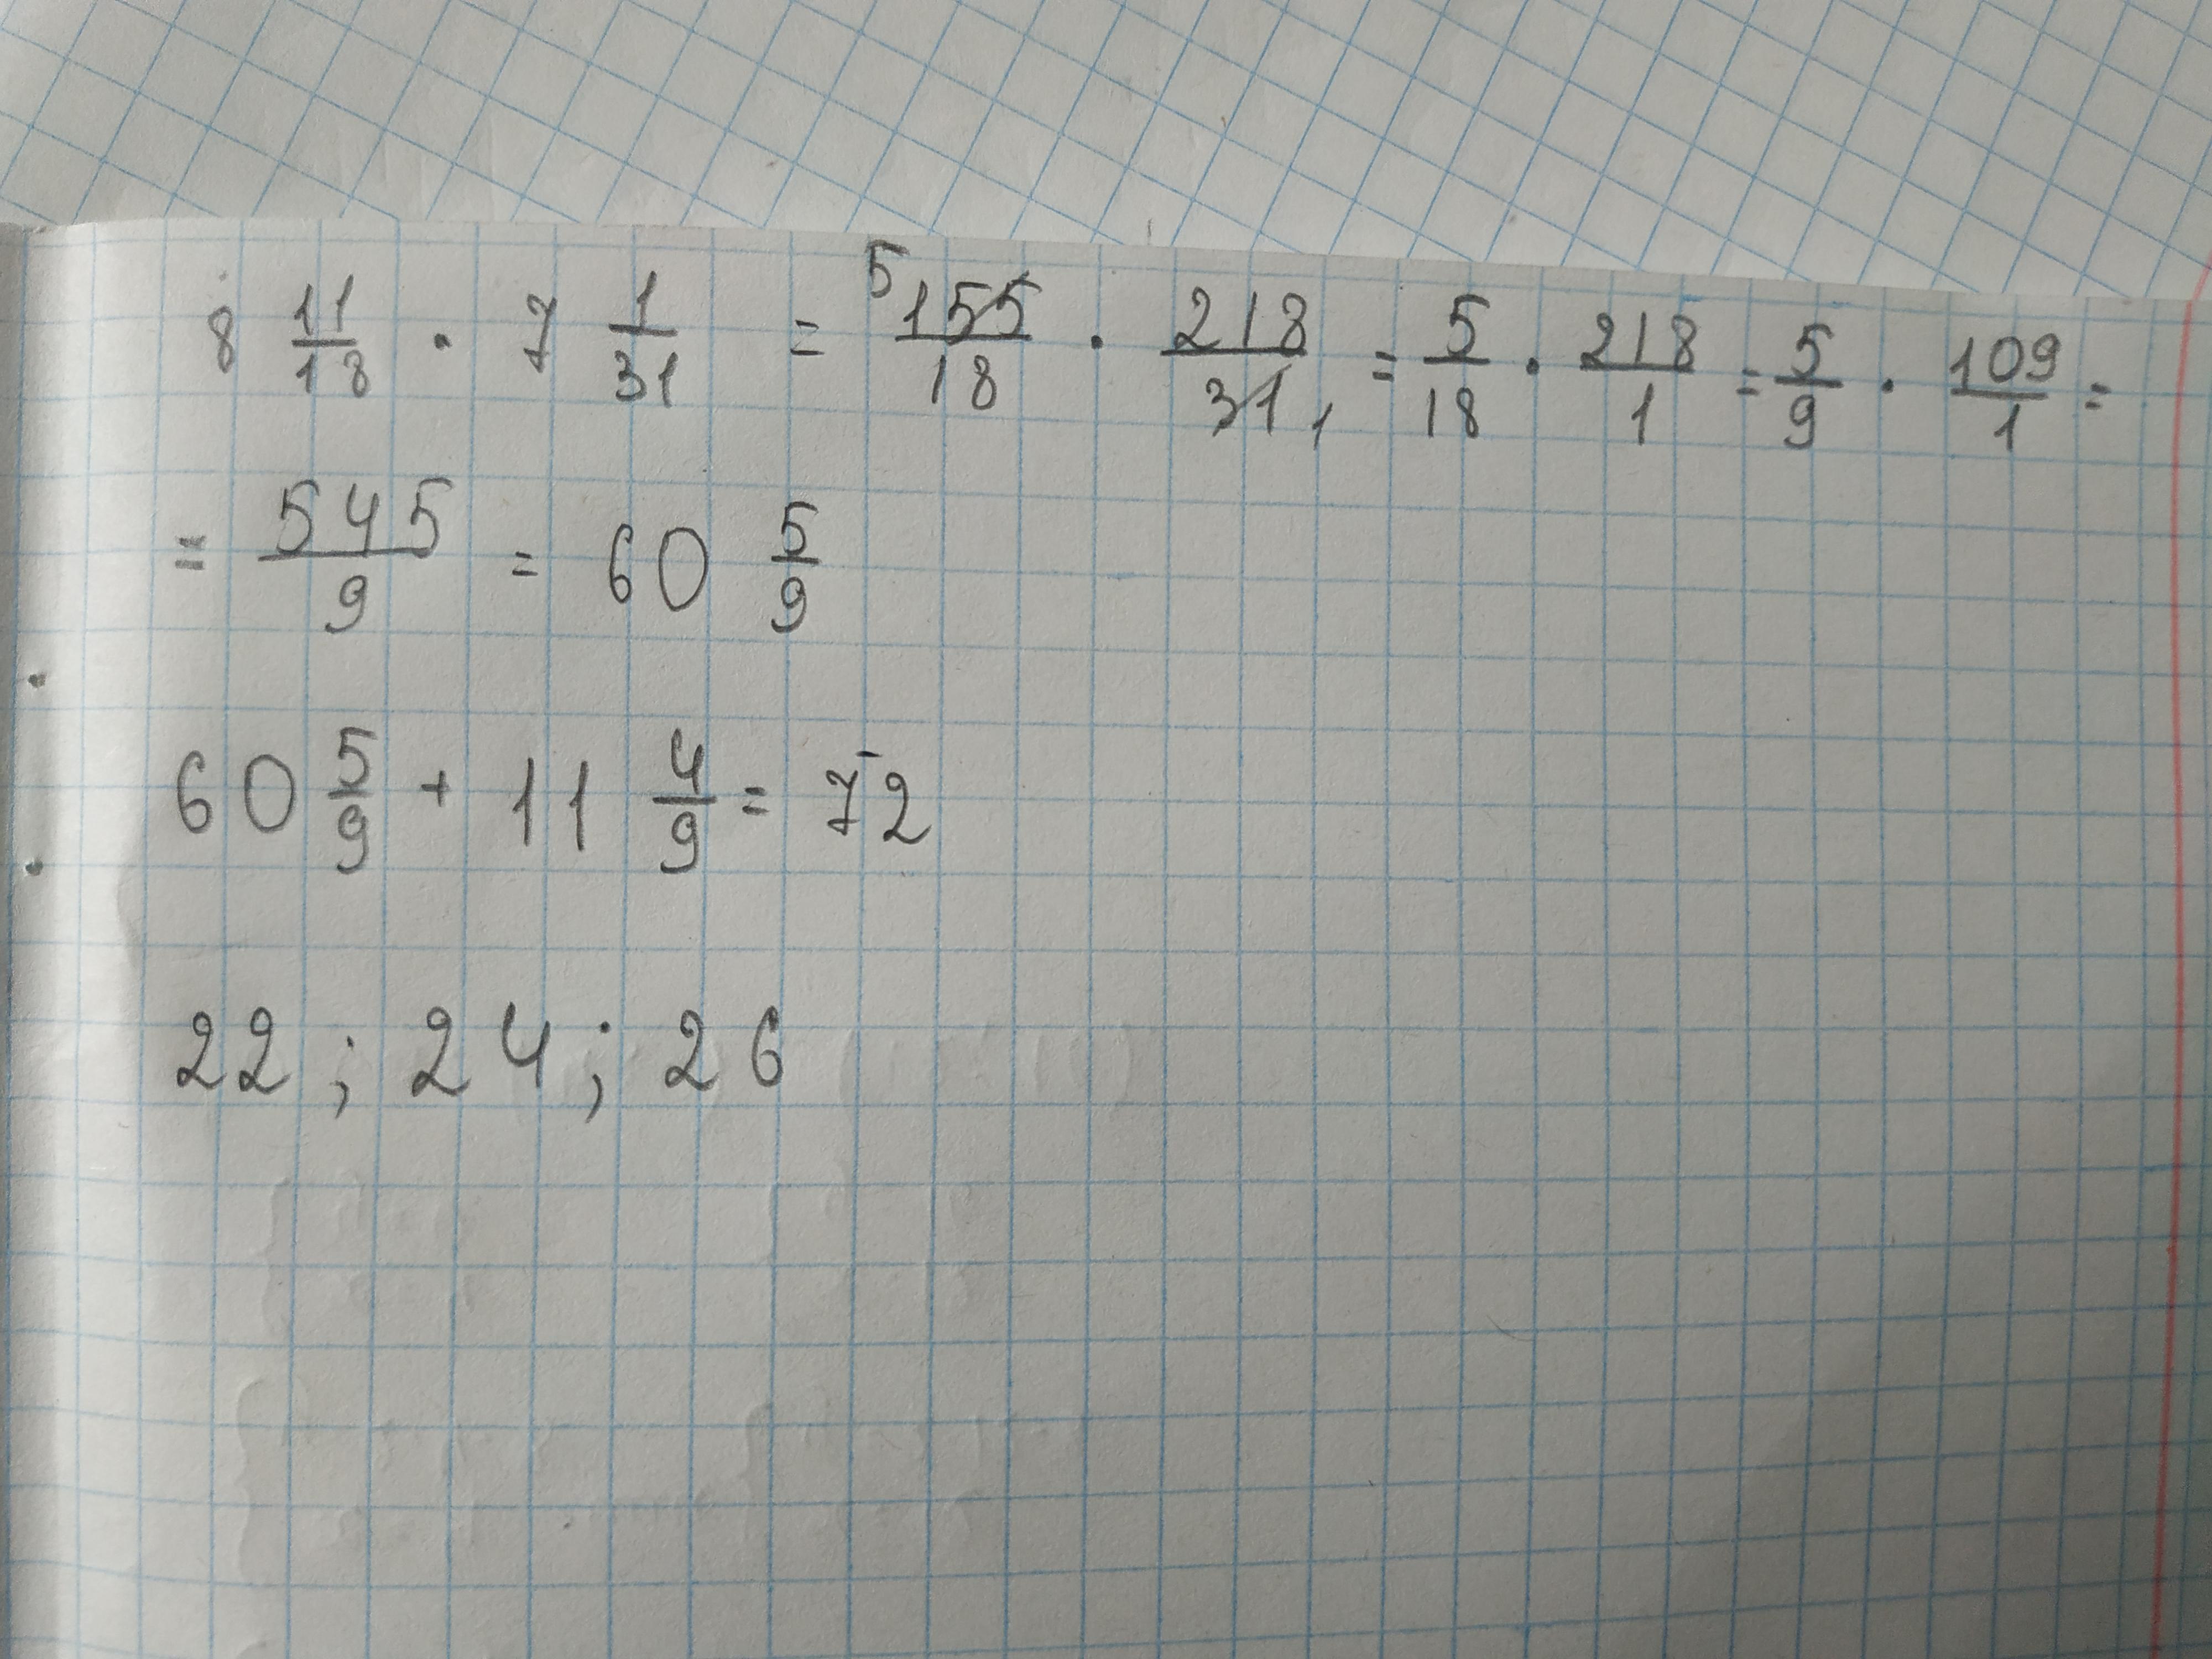 8 11/18 · 7 1/31 = ⁵155/18 · 218/31₁ = 5/18 · 218/1 = 5/9 · 109/1 =
= 545/9 = 60 5/9
60 5/9 + 11 4/9 = 72
22 ; 24 ; 26